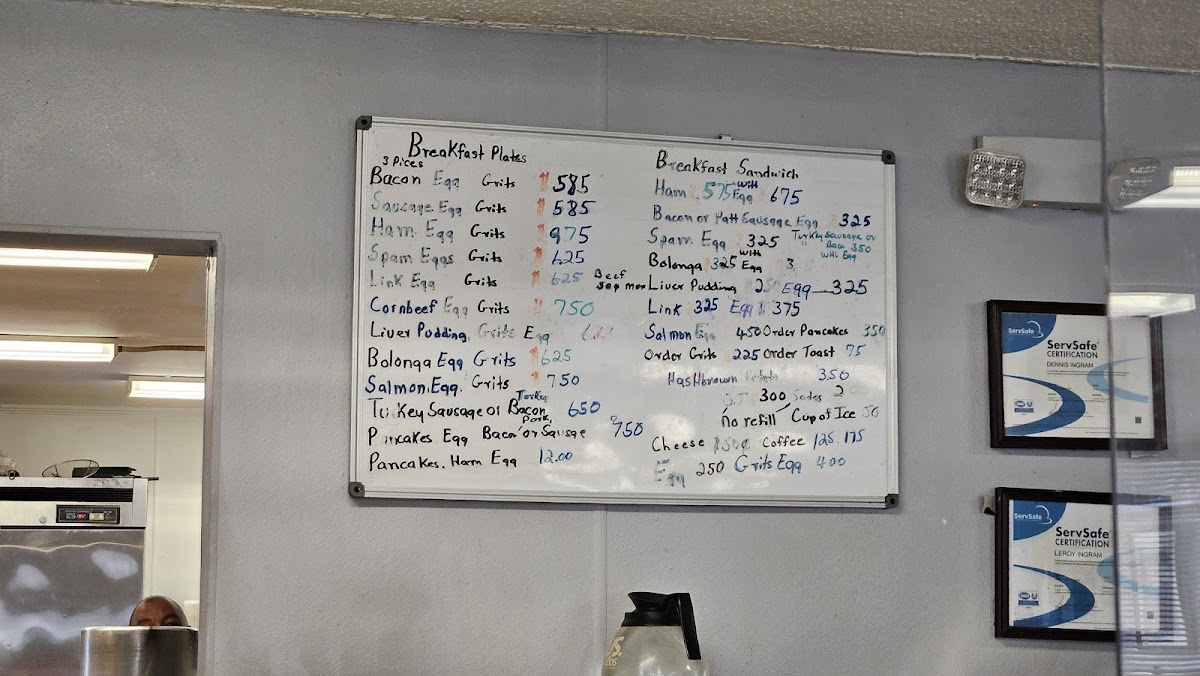 Breakfast Plates
3 Pices
Bacon Egg Grits $585
Sausage Egg Grits $585
Ham Egg Grits $975
Spam Eggs Grits $625
Link Egg Grits $625 Beef
Cornbeef Egg Grits $750
Liver Pudding, Grits Egg
Bolonga Egg Grits $625
Salmon Egg. Grits $750
Turkey
Turkey Sausage or Bacon 650
Pork
Pancakes Egg Bacon or Sausge 750
Pancakes. Ham Egg 12.00
Breakfast Sandwich
Ham .575 With Egg 675
Bacon or Patt Sausage Egg 325
Spam Egg 325 Turkey Sausage or
350
With Egg
Bolonga 325 With Egg 3
Liver Pudding Egg 325
Link 325 Egg 375
Salmon Egg 450 Order Pancakes 350
Order Grits 225 Order Toast 75
Hashbrown 350
300 Sodas 2
No refill Cup of Ice 50
Cheese Coffee 125.175
Egg 250 Grits Egg 400
ServSafe
ServSafe
CERTIFICATION
DENNIS INGRAM
ServSafe
ServSafe
CERTIFICATION
LEROY INGRAM